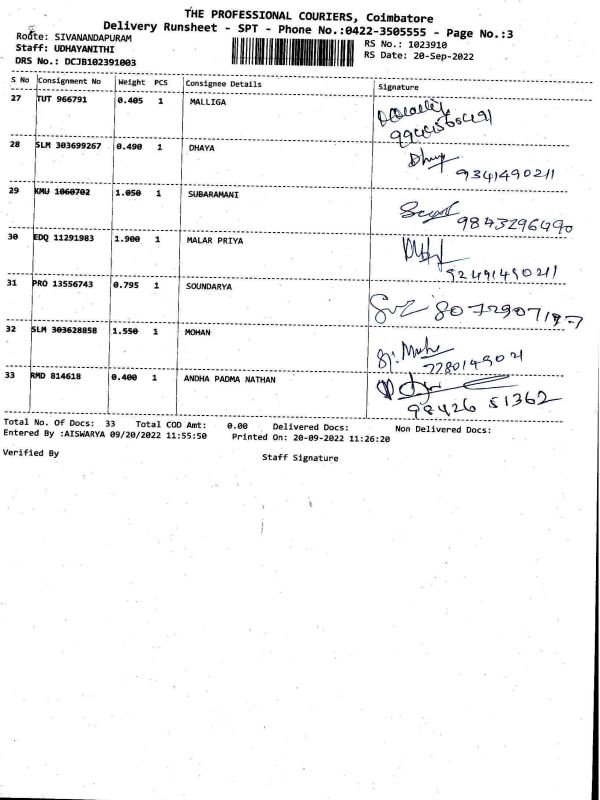 THE PROFESSIONAL COURIERS, Coimbatore
Delivery Runsheet - SPT - Phone No.:0422-3505555 - Page No.:3
Route: SIVANANDAPURAM
RS No.: 1023910
Staff: UDHAYANITHI
RS Date: 20-Sep-2022
DRS No.: DCJB102391003
S No Consignment No Weight PCS Consignee Details Signature
27 TUT 966791 0.405 1 MALLIGA
28 SLM 303699267 0.490 1 DHAYA
9341490211
29 KMU 1060702 1.050 1 SUBARAMANI
9843296490
30 EDQ 11291983 1.900 1 MALAR PRIYA
31 PRO 13556743 0.795 1 SOUNDARYA
32 SLM 303628858 1.550 1 MOHAN
33 RMD 814618 0.400 1 ANDHA PADMA NATHAN
98426 51362
Total No. Of Docs: 33 Total COD Amt: 0.00 Delivered Docs: Non Delivered Docs:
Entered By :AISWARYA 09/20/2022 11:55:50 Printed On: 20-09-2022 11:26:20
Verified By Staff Signature